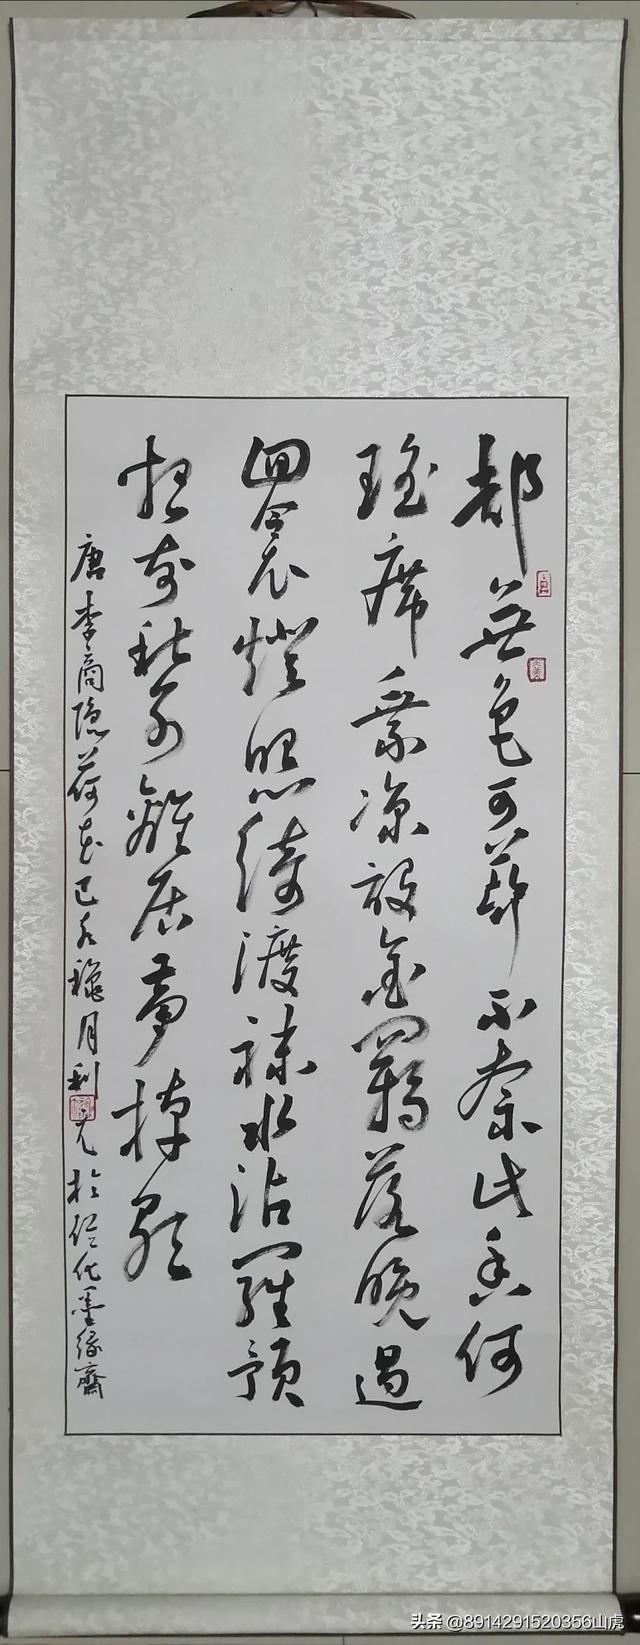 都無色可並不奈此香何
瑶席乘凉設金羈落晚過
回衾燈照綺渡袜水沾羅預
想前秋别離居夢棹歌
唐李商隐荷花己亥穐月利元於从化墨缘齋
头条 @8914291520356山虎